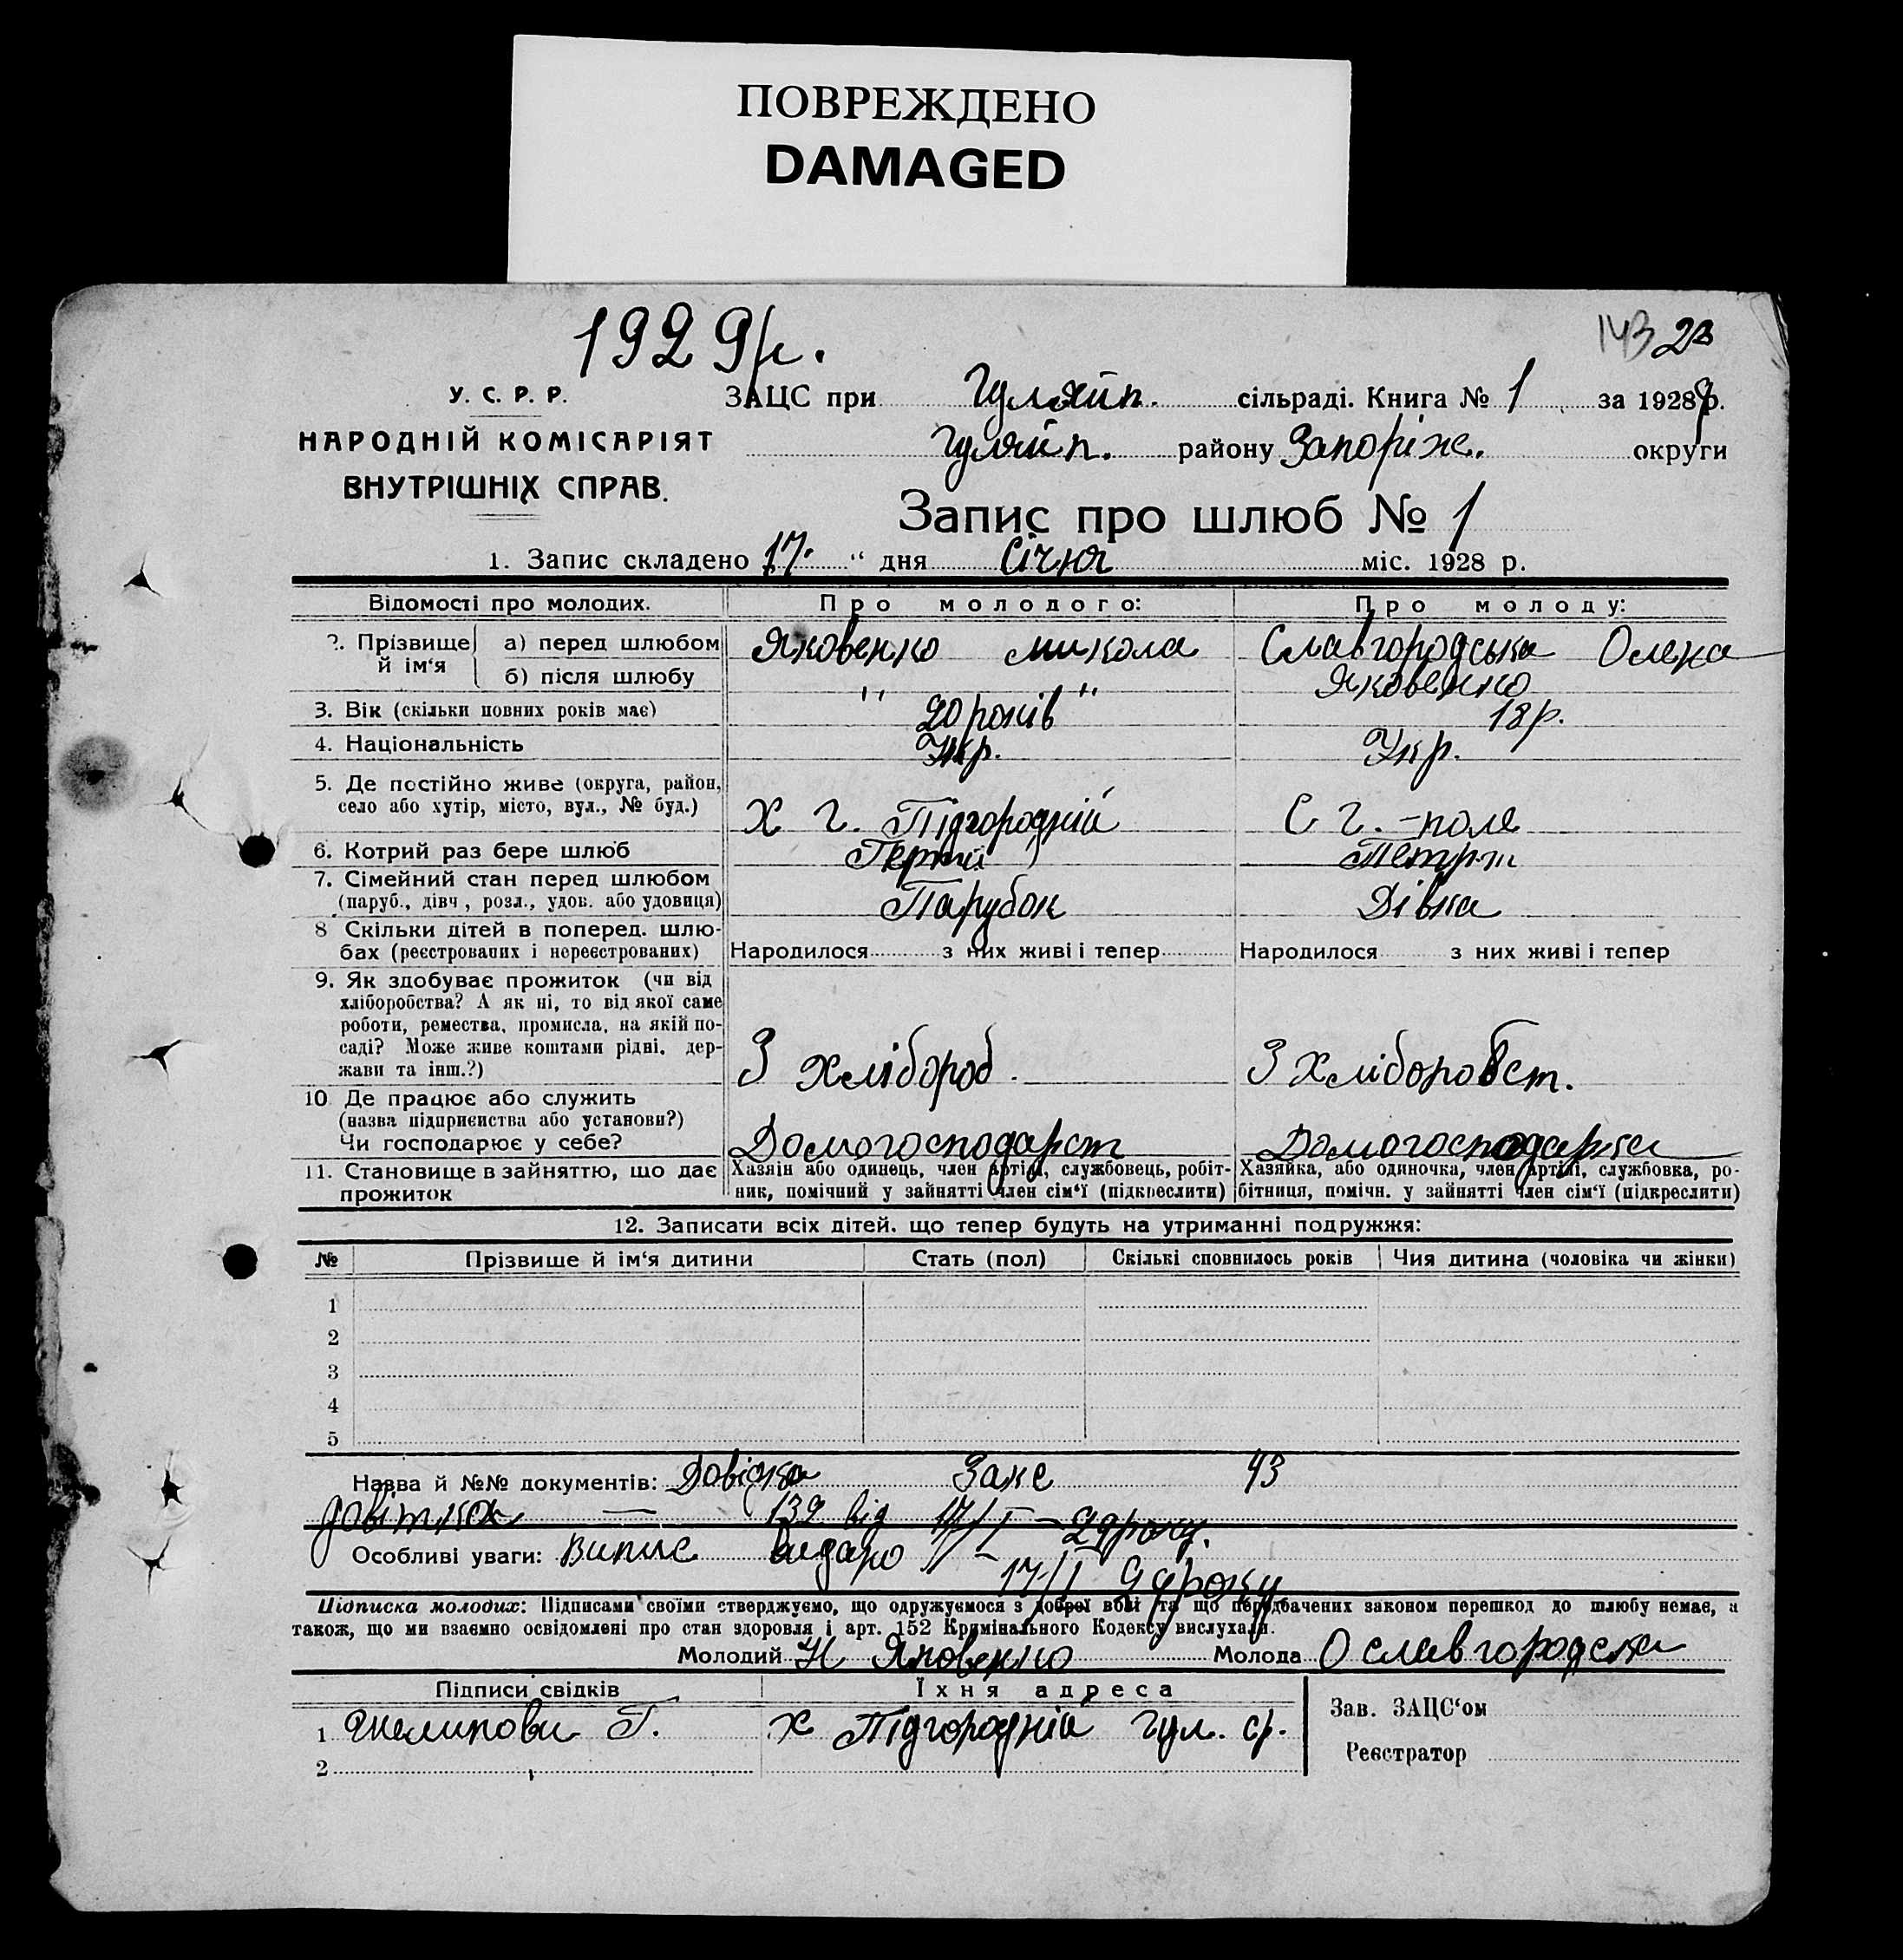 ПОВРЕЖДЕНО
DAMAGED
1929 р.
143 23
У. С. Р. Р.
НАРОДНІЙ КОМІСАРІЯТ
ВНУТРІШНІХ СПРАВ.
ЗАЦС при Гуляйп. сільраді. Книга № 1 за 1928 р.
Гуляйп. району Запоріж. округи
Запис про шлюб № 1
1. Запис складено 17. " дня Січня міс. 1928 р.
Відомості про молодих. Про молодого: Про молоду:
2. Прізвище й ім'я а) перед шлюбом Яковенко Микола Славгородська Олена
б) після шлюбу " " Яковенко
3. Вік (скільки повних років має) 20 років 18 р.
4. Національність Укр. Укр.
5. Де постійно живе (округа, район,
село або хутір, місто, вул., № буд.) Х Г. Підгородній С Г.-поле
6. Котрий раз бере шлюб Перший
7. Сімейний стан перед шлюбом
(паруб., дівч., розл., удов. або удовиця) Парубок Дівка
8 Скільки дітей в поперед. шлю-
бах (реєстрованих і нереєстрованих) Народилося з них живі і тепер Народилося з них живі і тепер
9. Як здобуває прожиток (чи від
хліборобства? А як ні, то від якої саме
роботи, ремества, промисла, на якій по-
саді? Може живе коштами рідні, дер-
жави та інш.?) З хлібороб. З хліборобст.
10 Де працює або служить
(назва підприємства або установи?)
Чи господарює у себе? Домогосподарст Домогосподарка
11. Становище в зайняттю, що дає
прожиток
Хазяін або одинець, член артілі, службовець, робіт-
ник, помічний у зайнятті член сім'ї (підкреслити)
Хазяйка, або одиночка, член артілі, службовка, ро-
бітниця, помічн. у зайнятті член сім'ї (підкреслити)
12. Записати всіх дітей, що тепер будуть на утриманні подружжя:
№ Прізвище й ім'я дитини Стать (пол) Скількі сповнилось років Чия дитина (чоловіка чи жінки)
1
2
3
4
5
Назва й №№ документів: Довідка Закс 43
132 від 17/I - 29 року.
Особливі уваги: Випис видано 17/I 29 року
Підписка молодих: Підписами своїми стверджуємо, що одружуємося з доброї волі та що передбачених законом перешкод до шлюбу немає, а
також, що ми взаємно освідомлені про стан здоровля і арт. 152 Кримінального Кодексу вислухали.
Молодий Н Яковенко Молода О Славгородська
Підписи свідків Їхня адреса
1 Г. х Підгородній Гул. ср.
2
Зав. ЗАЦС'ом
Реєстратор